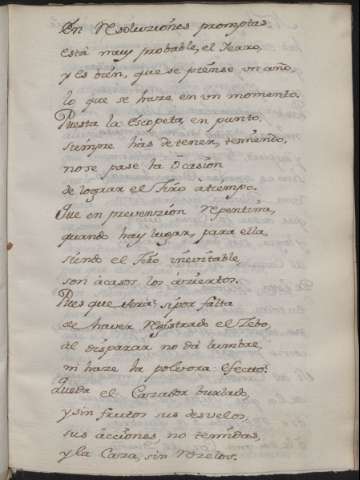 En Resoluziónes promptas
está muy probable, el Yearo,
y és bién, que se piénse un año,
lo que se haze en un momento.
Puesta la Escopeta, en punto,
siémpre hás de tener, teniéndo,
no se pase la Ocasión
de lograr el Tiro à tiempo.
Que en prevenzión Repentina,
quando hay lugar, para ella
siéndo el Tiro inevitable,
son ácasos, los ázièrtos.
Pues que sipor falta
de haver Registrado el Zebo,
al disparar no dá lumbre,
ni haze la polvora efecto:
Queda el Cazador burlado,
y sin frutos sus desvelos,
sus acciónes, no temidas,
y la Caza, sin Rezelos.